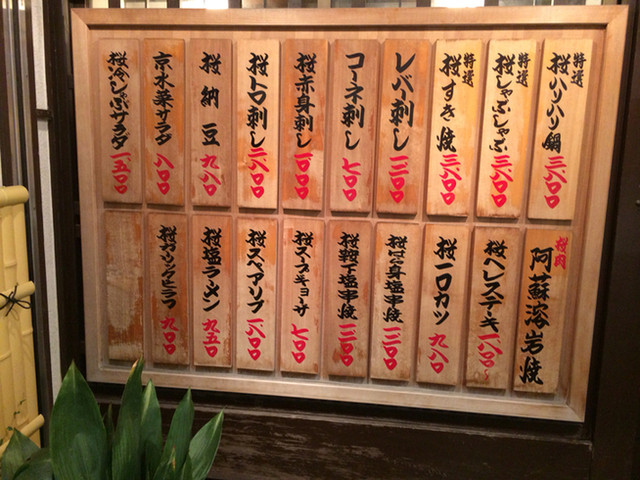 特選 桜ハリハリ鍋 三、八〇〇
特選 桜しゃぶしゃぶ 三、八〇〇
特選 桜すき焼 三、八〇〇
レバ刺し 一、二〇〇
コーネ刺し 七〇〇
桜赤身刺し
桜トロ刺し 二、八〇〇
桜納豆 九八〇
京水菜サラダ 八〇〇
桜冷しゃぶサラダ 一、五〇〇
桜肉 阿蘇溶岩焼
桜ヘレステーキ 一、八〇〇
桜一口カツ 九八〇
桜バラ身塩串焼 一、二〇〇
桜鞍下塩串焼 一、二〇〇
桜スープギョーザ 七〇〇
桜スペアリブ 一、八〇〇
桜塩ラーメン 九五〇
桜ガーリックピラフ 九〇〇